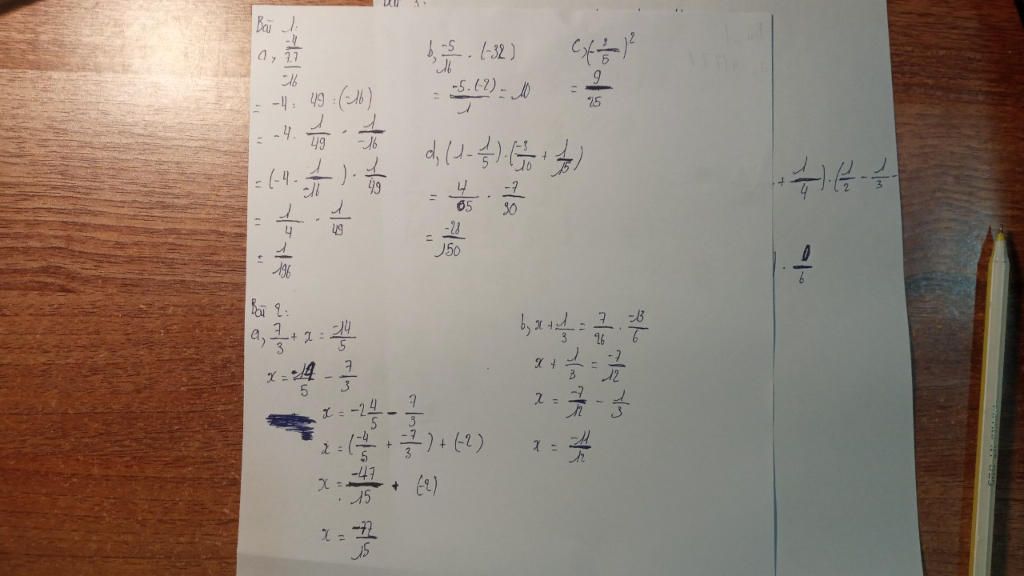 Bài 1:
a, -4/77/-16
= -4 : 49 : (-16)
= -4 . 1/49 . 1/-16
= (-4 . 1/-16) . 1/49
= 1/4 . 1/49
= 1/196
b, -5/16 . (-32)
= -5.(-2)/1 = 10
c, (-3/5)^2
= 9/25
d, (1 - 1/5) . (-3/10 + 1/15)
= 4/5 . -7/30
= -28/150
Bài 2:
a, 7/3 + x = -14/5
x = -14/5 - 7/3
x = -2 4/5 - 7/3
x = (-4/5 + -7/3) + (-2)
x = -47/15 + (-2)
x = -77/15
b, x + 1/3 = 7/26 . -13/6
x + 1/3 = -7/12
x = -7/12 - 1/3
x = -11/12
+ 1/4) . (1/2 - 1/3 -
. 0/6